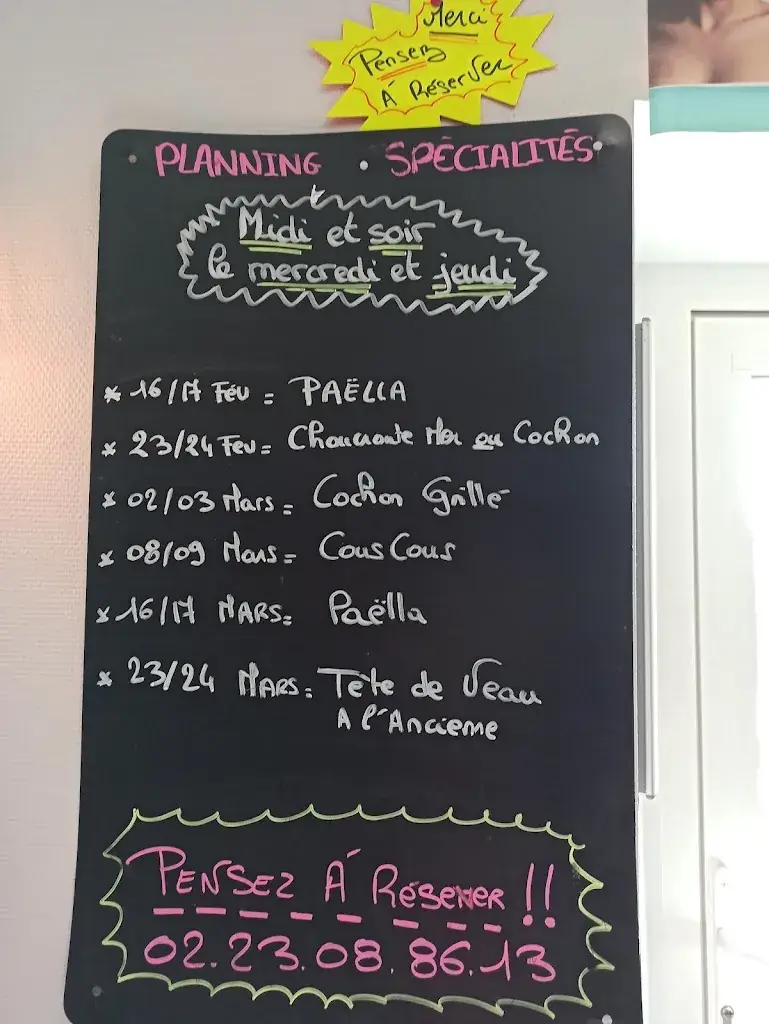 Merci
Pensez
À Réserver
PLANNING . SPÉCIALITÉS
Midi et soir
le mercredi et jeudi
* 16/17 Fév = PAËLLA
* 23/24 Fev = Choucroute Mer ou Cochon
* 02/03 Mars = Cochon Grillé
* 08/09 Mars = CousCous
* 16/17 MARS = Paëlla
* 23/24 MARS = Tête de Veau
A l'Ancienne
PENSEZ À Réserver !!
02.23.08.86.13